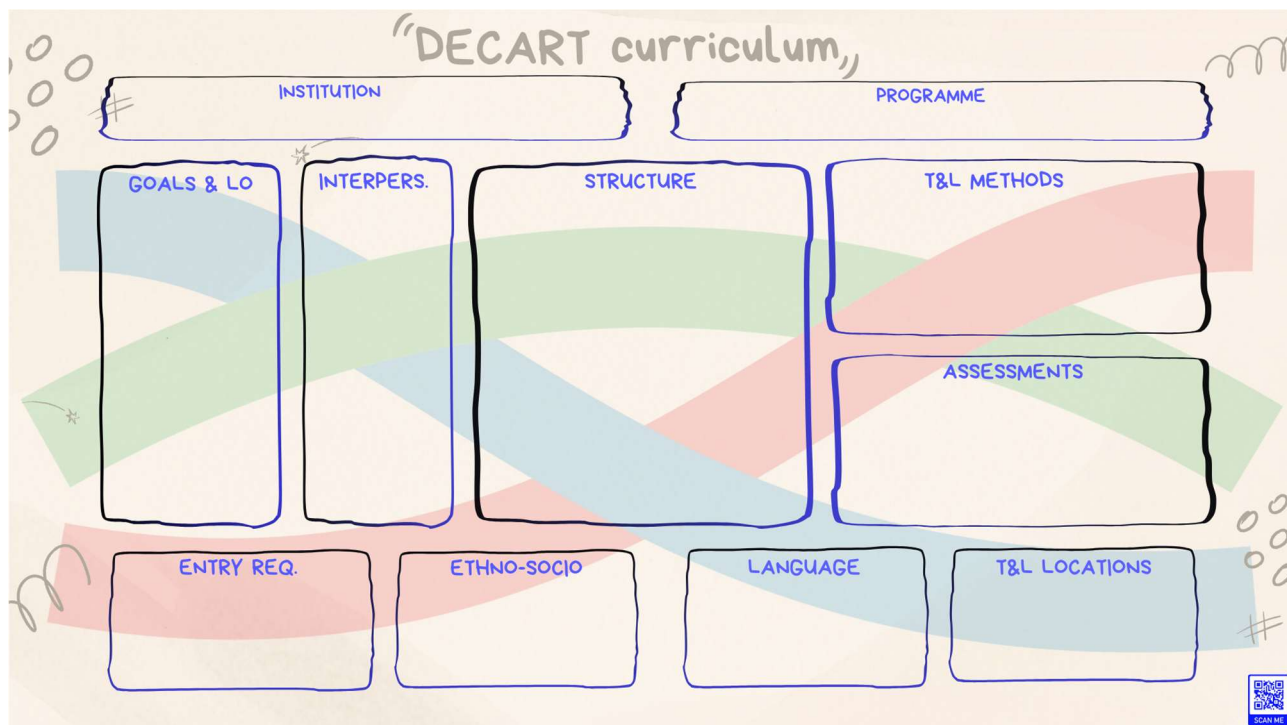 "DECART curriculum„
INSTITUTION
PROGRAMME
GOALS & LO
INTERPERS.
STRUCTURE
T&L METHODS
ASSESSMENTS
ENTRY REQ.
ETHNO-SOCIO
LANGUAGE
T&L LOCATIONS
SCAN ME